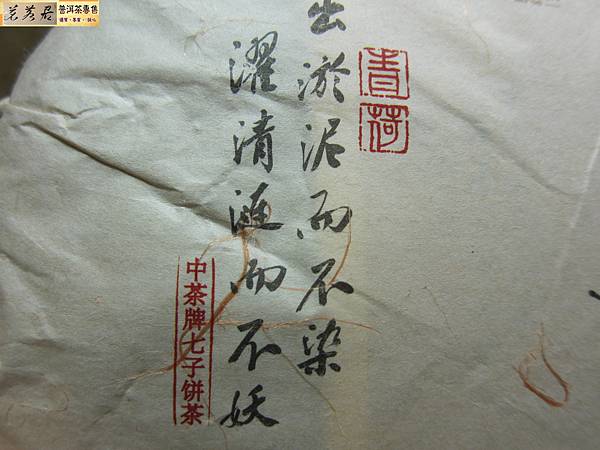 茗芳居
普洱茶專售
出淤泥而不染
濯清涟而不妖
青荷
中茶牌七子饼茶